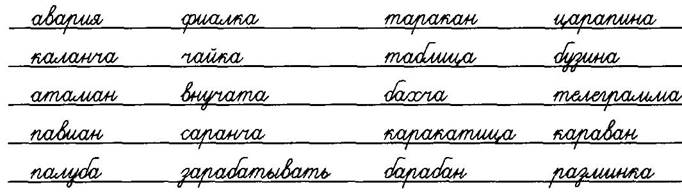 авария фиалка таракан царапина
каланча чайка таблица бузина
атаман внучата бахча телеграмма
павиан саранча каракатица караван
палуба зарабатывать барабан разминка